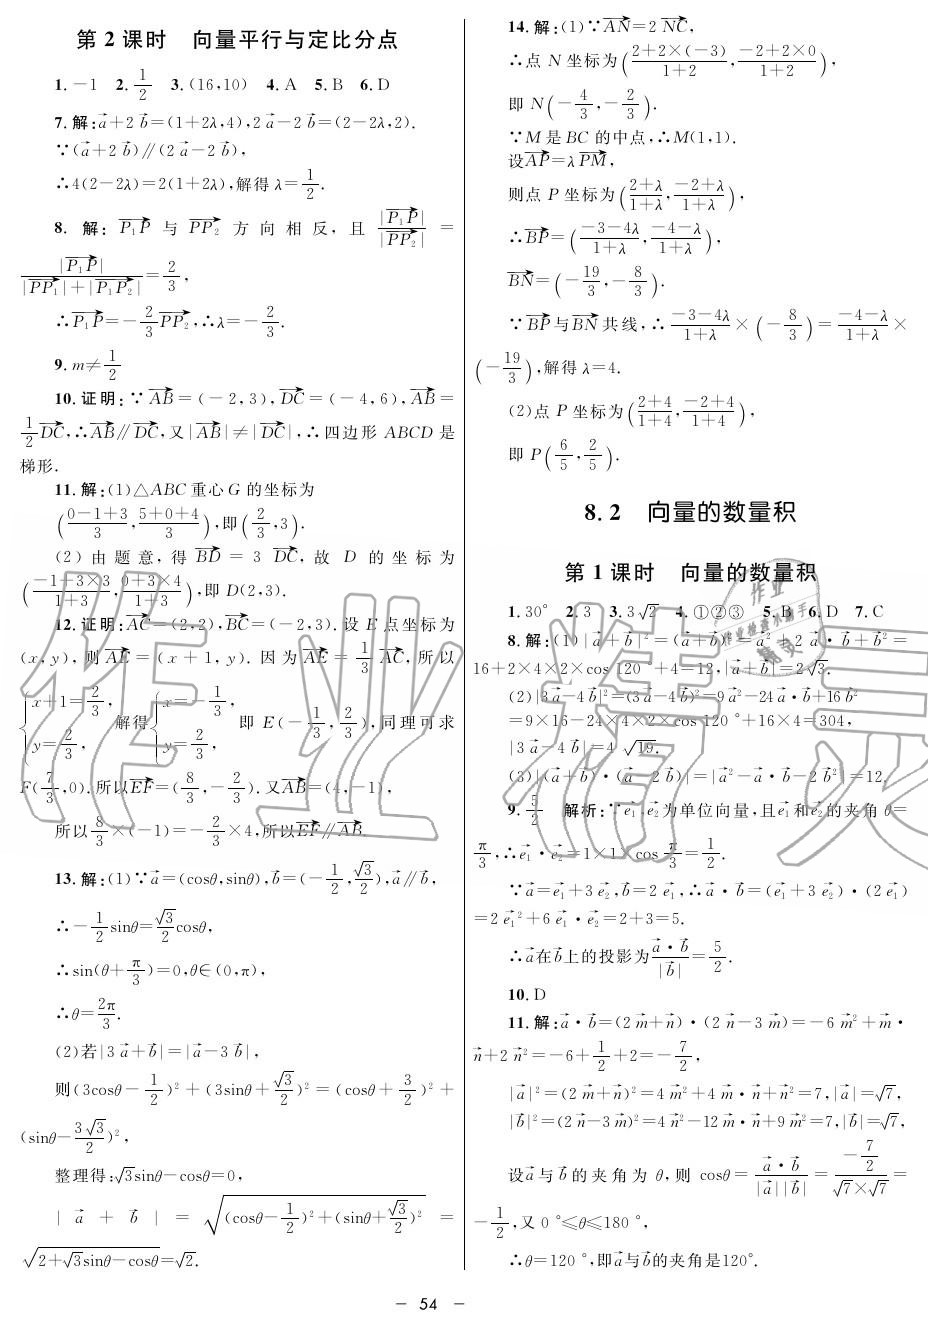 第2课时　向量平行与定比分点
1. -1　2. 1/2　3. (16,10)　4. A　5. B　6. D
7. 解: a⃗+2b⃗=(1+2λ,4),2a⃗-2b⃗=(2-2λ,2).
∵(a⃗+2b⃗)∥(2a⃗-2b⃗),
∴4(2-2λ)=2(1+2λ),解得λ=1/2.
8. 解: P₁P⃗ 与 PP₂⃗ 方向相反,且 |P₁P⃗|/|PP₂⃗| =
|P₁P⃗|/(|PP₁⃗|+|P₁P₂⃗|)=2/3,
∴P₁P⃗=-2/3 PP₂⃗,∴λ=-2/3.
9. m≠1/2
10. 证明:∵AB⃗=(-2,3),DC⃗=(-4,6),AB⃗=
1/2 DC⃗,∴AB⃗∥DC⃗,又|AB⃗|≠|DC⃗|,∴四边形ABCD是
梯形.
11. 解:(1)△ABC重心G的坐标为
((0-1+3)/3,(5+0+4)/3),即(2/3,3).
(2)由题意,得BD⃗=3DC⃗,故D的坐标为
((-1+3×3)/(1+3),(0+3×4)/(1+3)),即D(2,3).
12. 证明:AC⃗=(2,2),BC⃗=(-2,3).设E点坐标为
(x,y),则AE⃗=(x+1,y).因为AE⃗=1/3 AC⃗,所以
{x+1=2/3, y=2/3, 解得{x=-1/3, y=2/3, 即E(-1/3,2/3),同理可求
F(7/3,0).所以EF⃗=(8/3,-2/3).又AB⃗=(4,-1),
所以8/3×(-1)=-2/3×4,所以EF⃗∥AB⃗.
13. 解:(1)∵a⃗=(cosθ,sinθ),b⃗=(-1/2,√3/2),a⃗∥b⃗,
∴-1/2 sinθ=√3/2 cosθ,
∴sin(θ+π/3)=0,θ∈(0,π),
∴θ=2π/3.
(2)若|3a⃗+b⃗|=|a⃗-3b⃗|,
则(3cosθ-1/2)²+(3sinθ+√3/2)²=(cosθ+3/2)²+
(sinθ-3√3/2)²,
整理得:√3sinθ-cosθ=0,
|a⃗+b⃗|=√((cosθ-1/2)²+(sinθ+√3/2)²)=
√(2+√3sinθ-cosθ)=√2.
14. 解:(1)∵AN⃗=2NC⃗,
∴点N坐标为((2+2×(-3))/(1+2),(-2+2×0)/(1+2)),
即N(-4/3,-2/3).
∵M是BC的中点,∴M(1,1).
设AP⃗=λPM⃗,
则点P坐标为((2+λ)/(1+λ),(-2+λ)/(1+λ)),
∴BP⃗=((-3-4λ)/(1+λ),(-4-λ)/(1+λ)),
BN⃗=(-19/3,-8/3).
∵BP⃗与BN⃗共线,∴(-3-4λ)/(1+λ)×(-8/3)=(-4-λ)/(1+λ)×
(-19/3),解得λ=4.
(2)点P坐标为((2+4)/(1+4),(-2+4)/(1+4)),
即P(6/5,2/5).
8.2　向量的数量积
第1课时　向量的数量积
1. 30°　2. 3　3. 3√2　4. ①②③　5. B　6. D　7. C
8. 解:(1)|a⃗+b⃗|²=(a⃗+b⃗)²=a⃗²+2a⃗·b⃗+b⃗²=
16+2×4×2×cos 120°+4=12,|a⃗+b⃗|=2√3.
(2)|3a⃗-4b⃗|²=(3a⃗-4b⃗)²=9a⃗²-24a⃗·b⃗+16b⃗²
=9×16-24×4×2×cos 120°+16×4=304,
|3a⃗-4b⃗|=4√19.
(3)|(a⃗+b⃗)·(a⃗-2b⃗)|=|a⃗²-a⃗·b⃗-2b⃗²|=12.
9. 5/2　解析:∵e₁⃗,e₂⃗为单位向量,且e₁⃗和e₂⃗的夹角θ=
π/3,∴e₁⃗·e₂⃗=1×1×cos π/3=1/2.
∵a⃗=e₁⃗+3e₂⃗,b⃗=2e₁⃗,∴a⃗·b⃗=(e₁⃗+3e₂⃗)·(2e₁⃗)
=2e₁⃗²+6e₁⃗·e₂⃗=2+3=5.
∴a⃗在b⃗上的投影为a⃗·b⃗/|b⃗|=5/2.
10. D
11. 解:a⃗·b⃗=(2m⃗+n⃗)·(2n⃗-3m⃗)=-6m⃗²+m⃗·
n⃗+2n⃗²=-6+1/2+2=-7/2,
|a⃗|²=(2m⃗+n⃗)²=4m⃗²+4m⃗·n⃗+n⃗²=7,|a⃗|=√7,
|b⃗|²=(2n⃗-3m⃗)²=4n⃗²-12m⃗·n⃗+9m⃗²=7,|b⃗|=√7,
设a⃗与b⃗的夹角为θ,则cosθ=a⃗·b⃗/(|a⃗||b⃗|)=(-7/2)/(√7×√7)=
-1/2,又0°≤θ≤180°,
∴θ=120°,即a⃗与b⃗的夹角是120°.
- 54 -
作业精灵